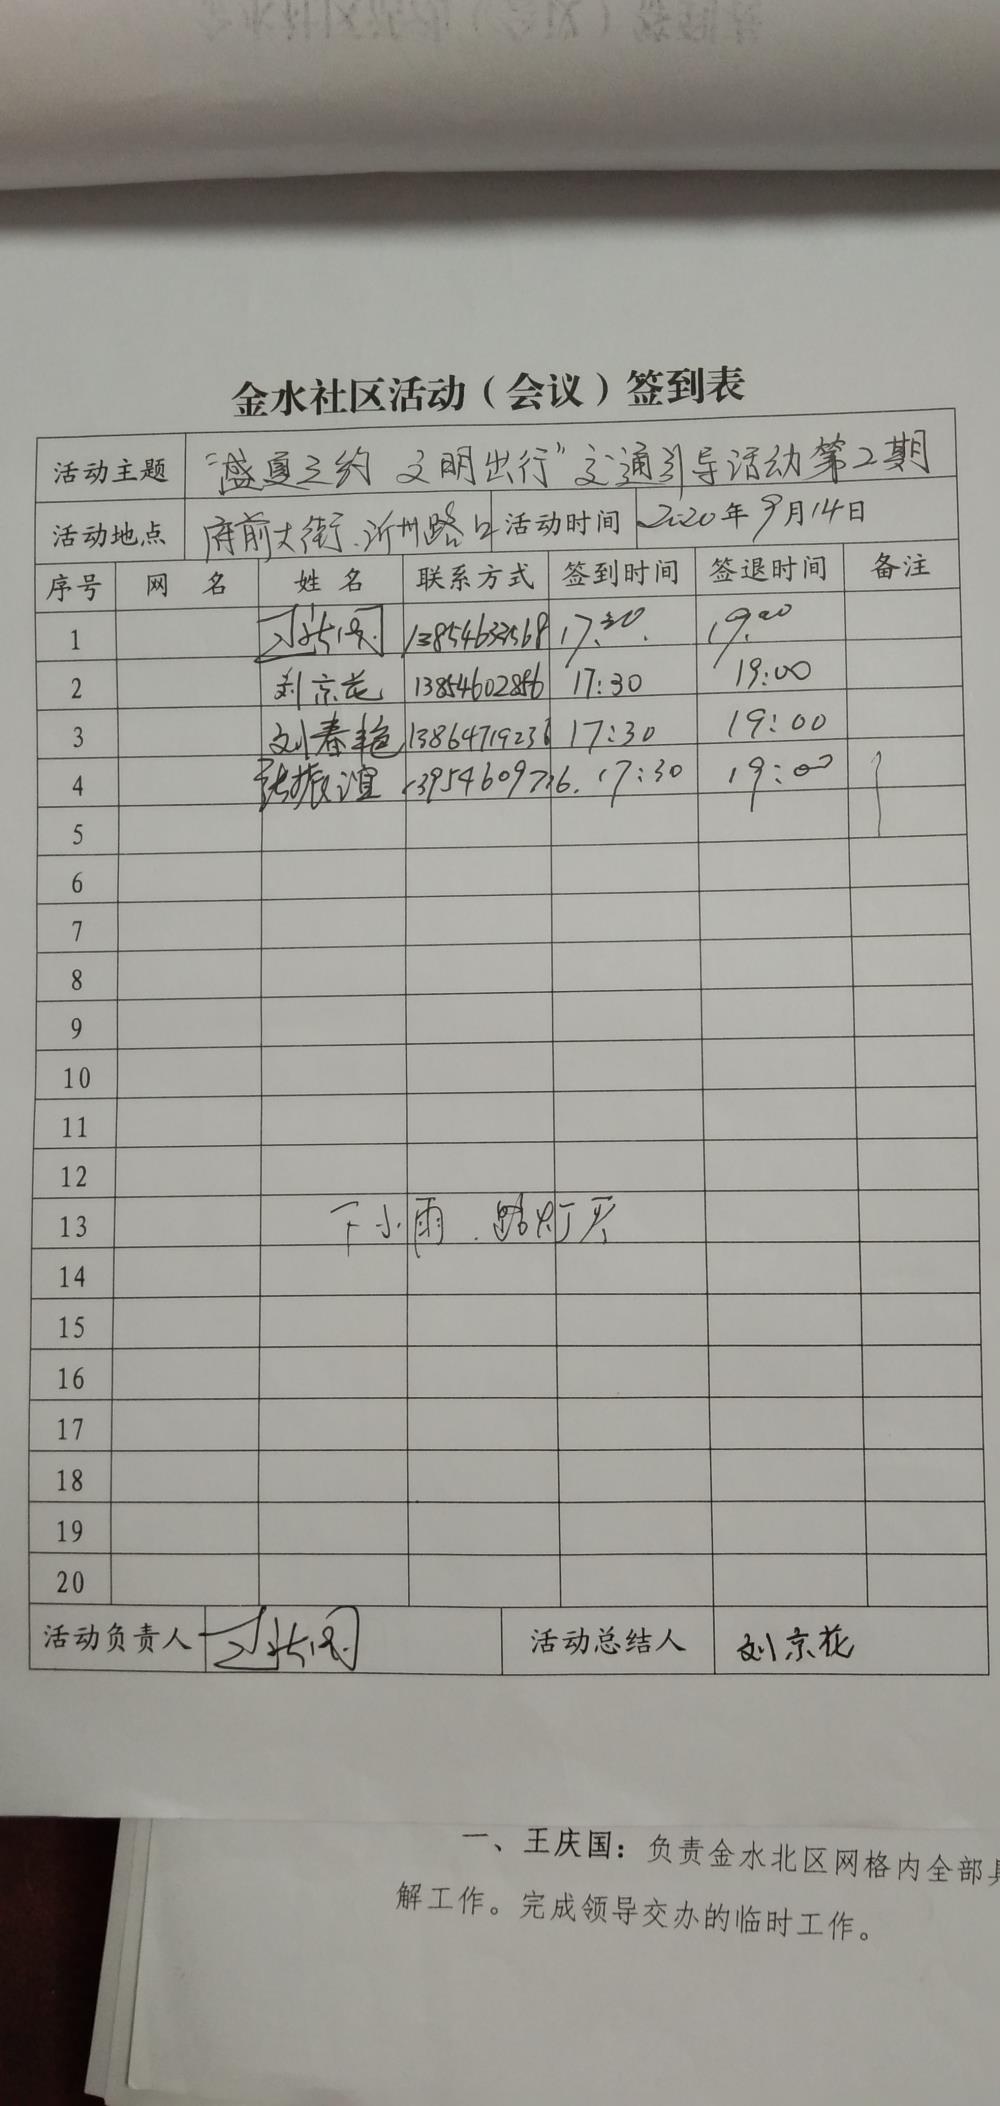 金水社区活动（会议）签到表
活动主题 “盛夏之约 文明出行”交通引导活动第2期
活动地点 府前大街、沂州路口 活动时间 2020年9月14日
序号 网 名 姓 名 联系方式 签到时间 签退时间 备注
1 17:30. 19:00
2 刘京花 13854602856 17:30 19:00
3 刘春艳 13864719236 17:30 19:00
4 张振谊 17:30 19:00
5
6
7
8
9
10
11
12
13 下小雨.路灯灭
14
15
16
17
18
19
20
活动负责人 活动总结人 刘京花
一、王庆国：负责金水北区网格内全部
解工作。完成领导交办的临时工作。